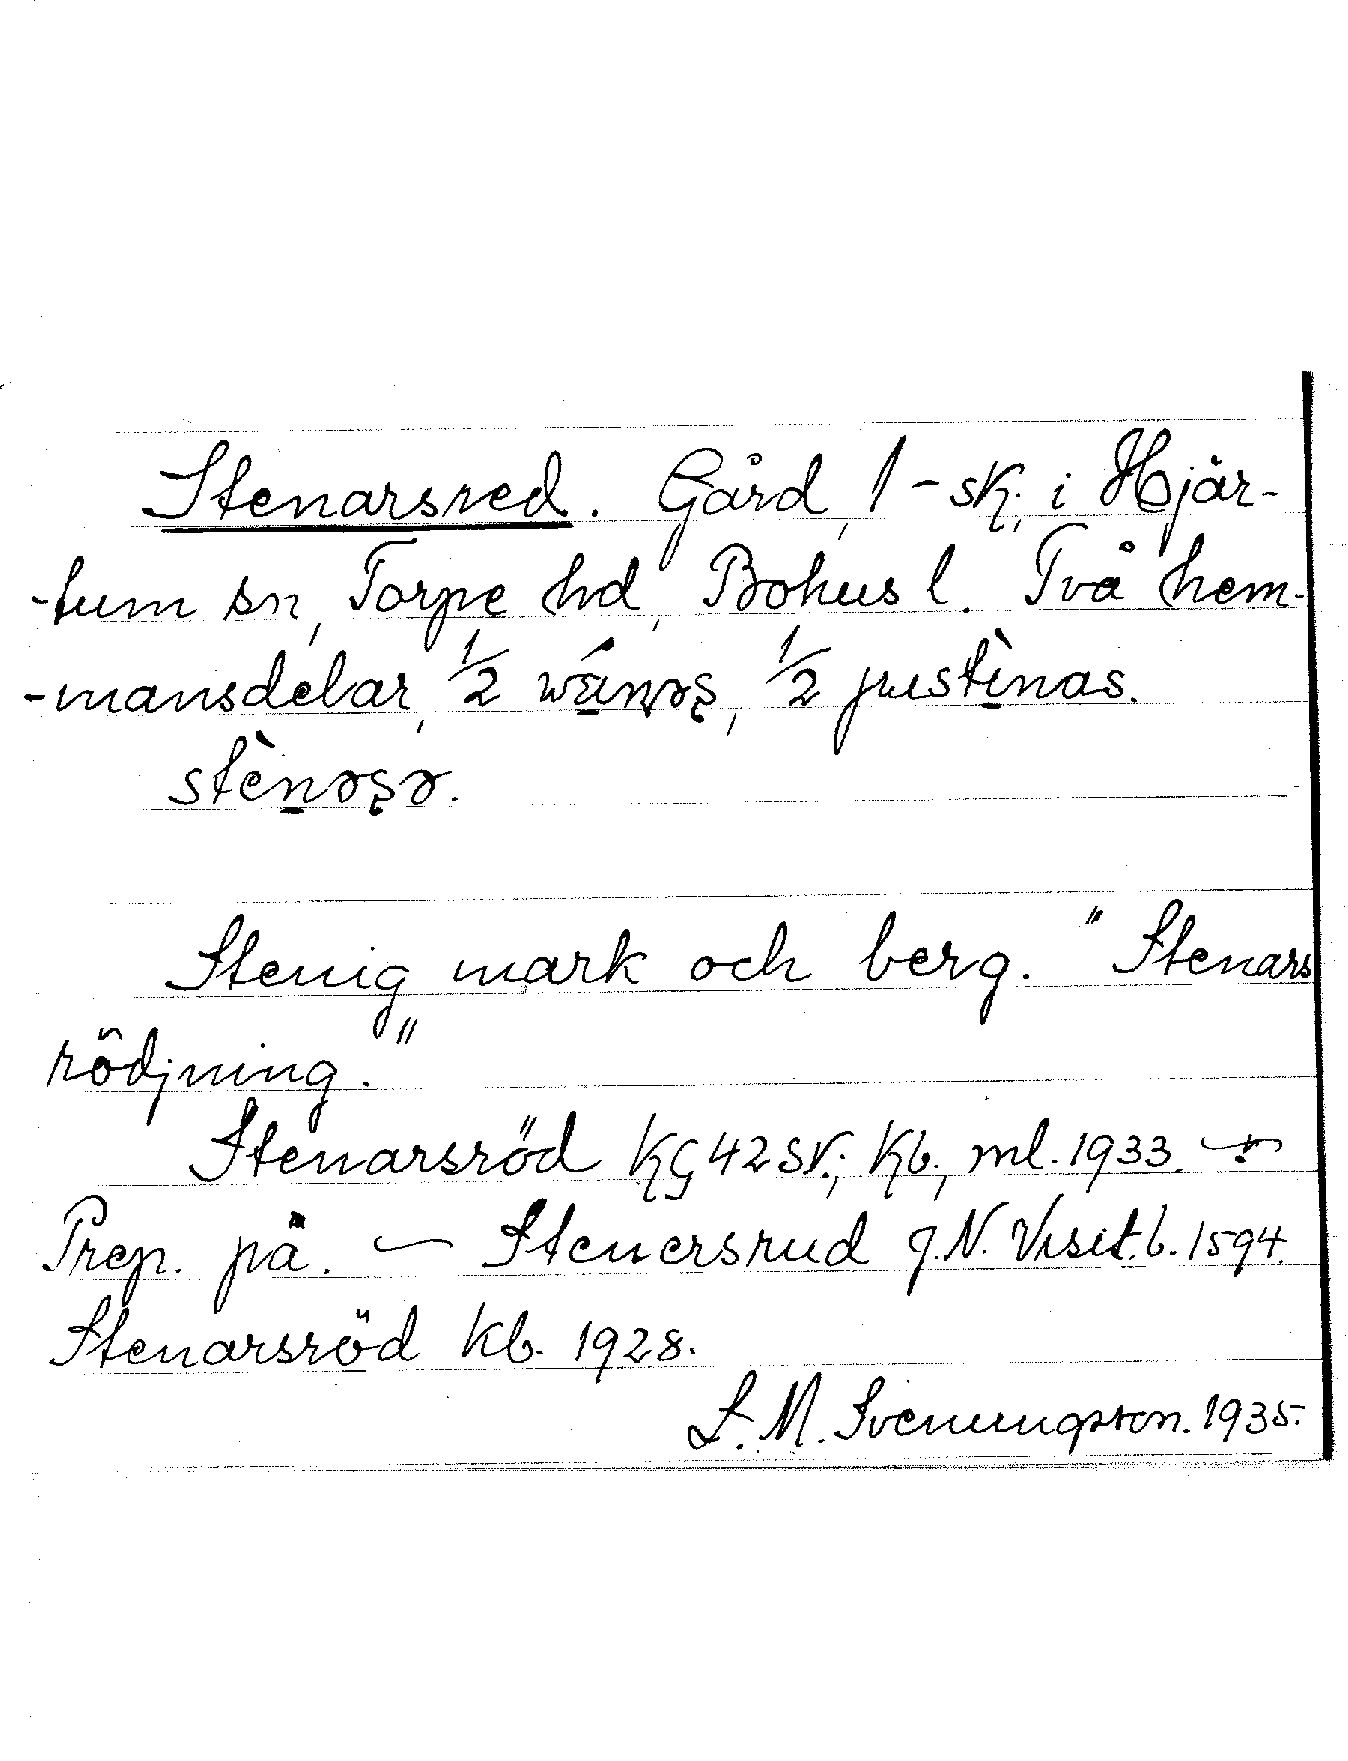 Stenarsred. Gård, 1-sk., i Hjär-
-tum sn, Torpe hd, Bohus l. Två hem-
-mansdelar, 1/2, 1/2
Stenig mark och berg. "Stenars
rödjning."
Stenarsröd KG 42 SV.; Kb., ml. 1933.
Prep. på. — Stenersrud J.N. Visit.b. 1594.
Stenarsröd Kb. 1928.
S. M. Svenungsson. 1935.